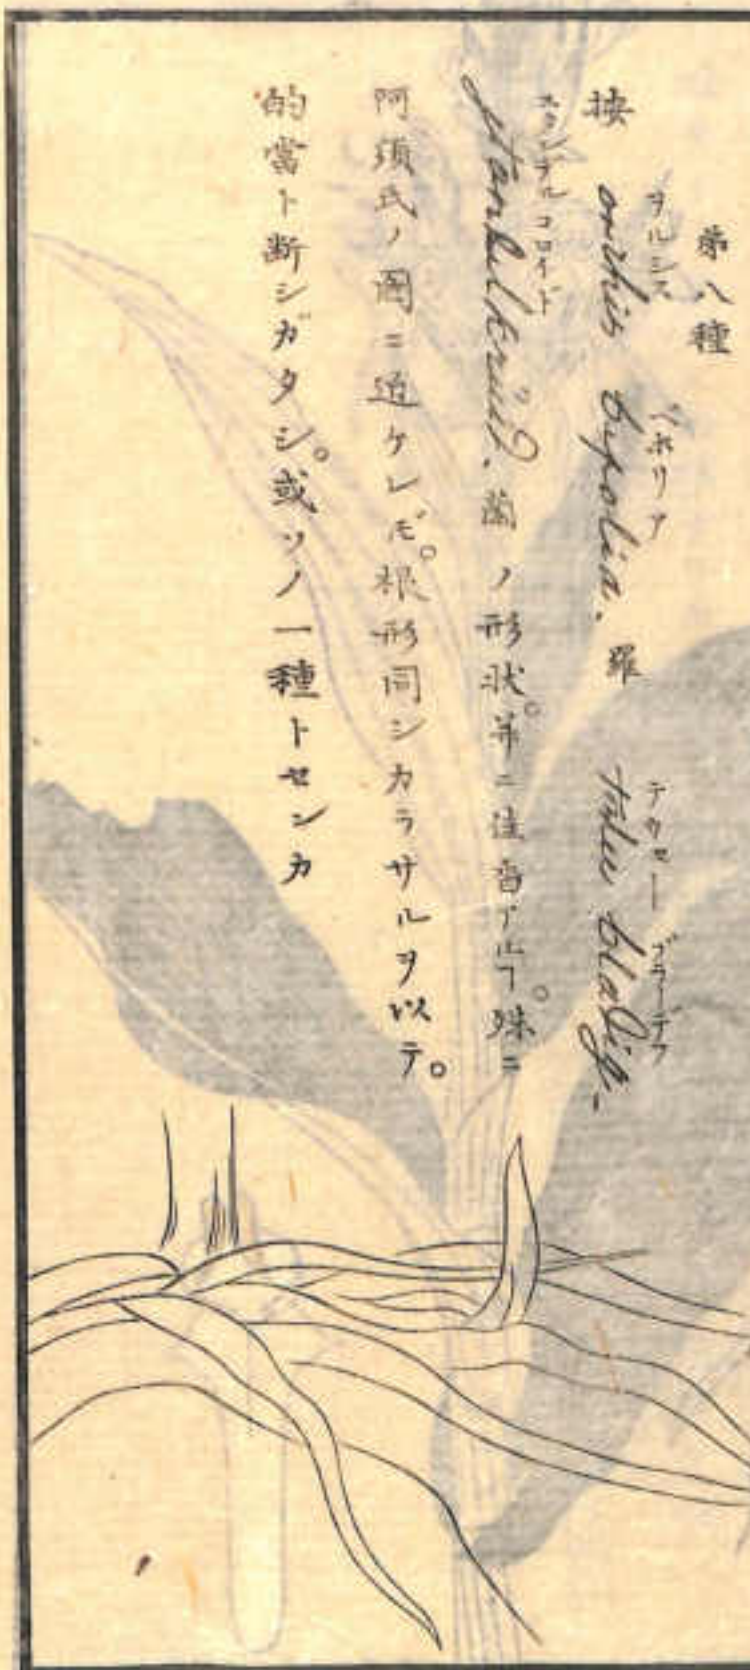 第八種
按 ヲルシス orchis ビホリア bifolia. 羅 テウェー ブラーデフ twee bladig,
スタンデルコロイト standelkruid. 蘭ノ形状。并ニ佳香アルヿ。殊ニ
阿須氏ノ圖ニ適ケレ𪜈。根形同シカラサルヲ以テ。
的當ト断シガタシ。或ソノ一種トセンカ